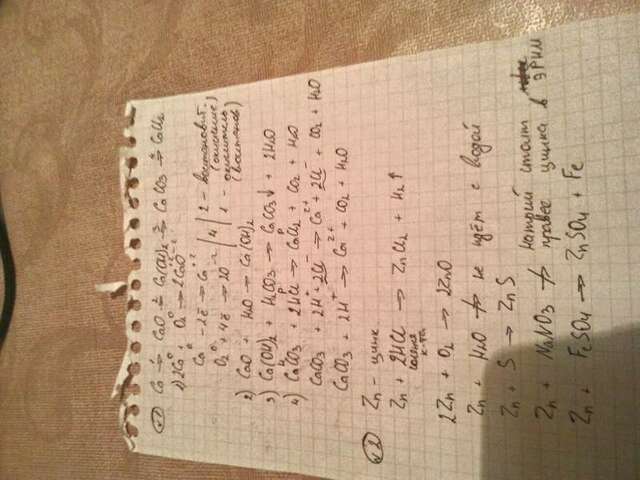 √1) Ca →¹ CaO →² Ca(OH)₂ →³ CaCO₃ →⁴ CaCl₂
1) 2Ca⁰ + O₂⁰ → 2Ca⁺²O⁻²
Ca⁰ - 2ē → Ca⁺² | 4 | 2 - восстановит. (окисление)
O₂⁰ + 4ē → 2O⁻² | 1 - окислитель (восстанов)
2) CaO + H₂O → Ca(OH)₂
3) Ca(OH)₂ + H₂CO₃ → CaCO₃↓ + 2H₂O
4) CaCO₃ + 2HCl → CaCl₂ + CO₂ + H₂O
CaCO₃ + 2H⁺ + 2Cl⁻ → Ca²⁺ + 2Cl⁻ + CO₂ + H₂O
CaCO₃ + 2H⁺ → Ca²⁺ + CO₂ + H₂O
√2
Zn - цинк
Zn + 2HCl → ZnCl₂ + H₂↑
соляная к-та
2Zn + O₂ → 2ZnO
Zn + H₂O ↛ не идёт с водой
Zn + S → ZnS
Zn + NaNO₃ ↛ натрий стоит
правее цинка в ЭРНМ
Zn + FeSO₄ → ZnSO₄ + Fe